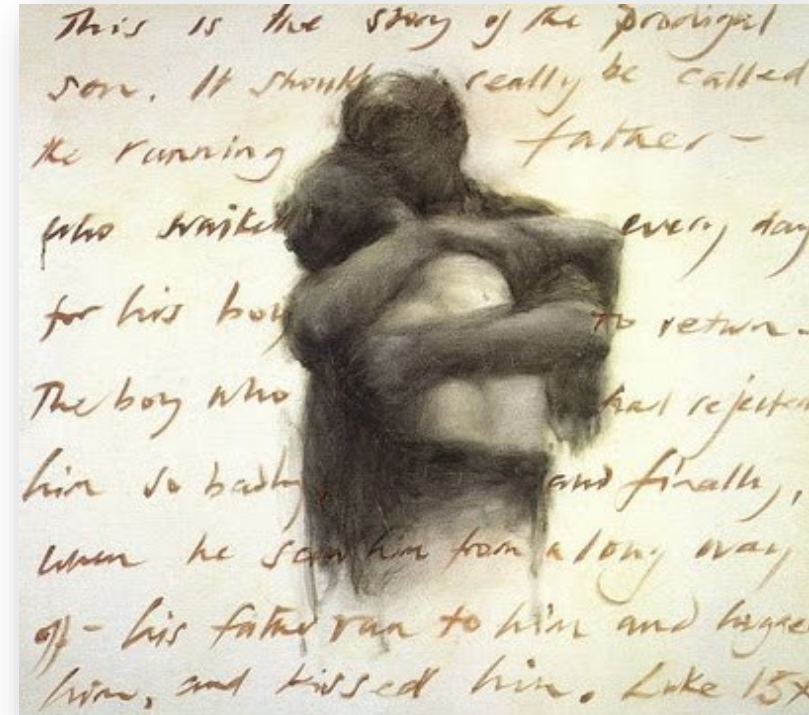 This is the story of the prodigal
son. It should really be called
the running father –
who waited every day
for his boy to return.
The boy who had rejected
him so badly, and finally,
when he saw him from a long way
off – his father ran to him and hugged
him, and kissed him. Luke 15